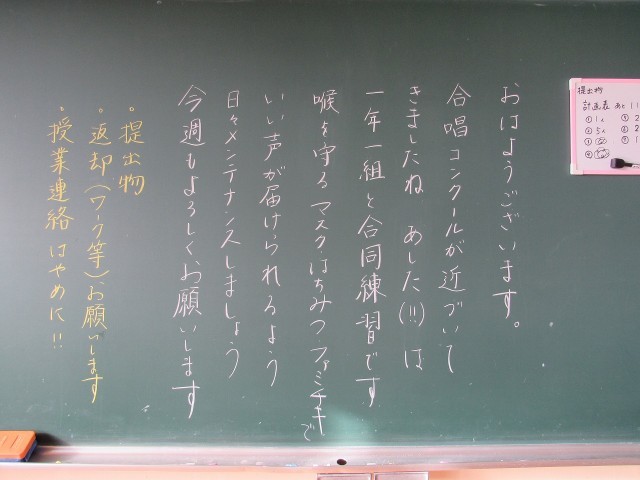 おはようございます。
合唱コンクールが近づいて
きましたね あした(!!)は
一年一組と合同練習です
喉を守るマスク・はちみつ・ファミチキで
いい声が届けられるよう
日々メンテナンスしましょう
今週もよろしくお願いします
・提出物
・返却(ワーク等)お願いします
・授業連絡 はやめに!!
提出物
計画表 あと
① 1人
② 5人
③
④